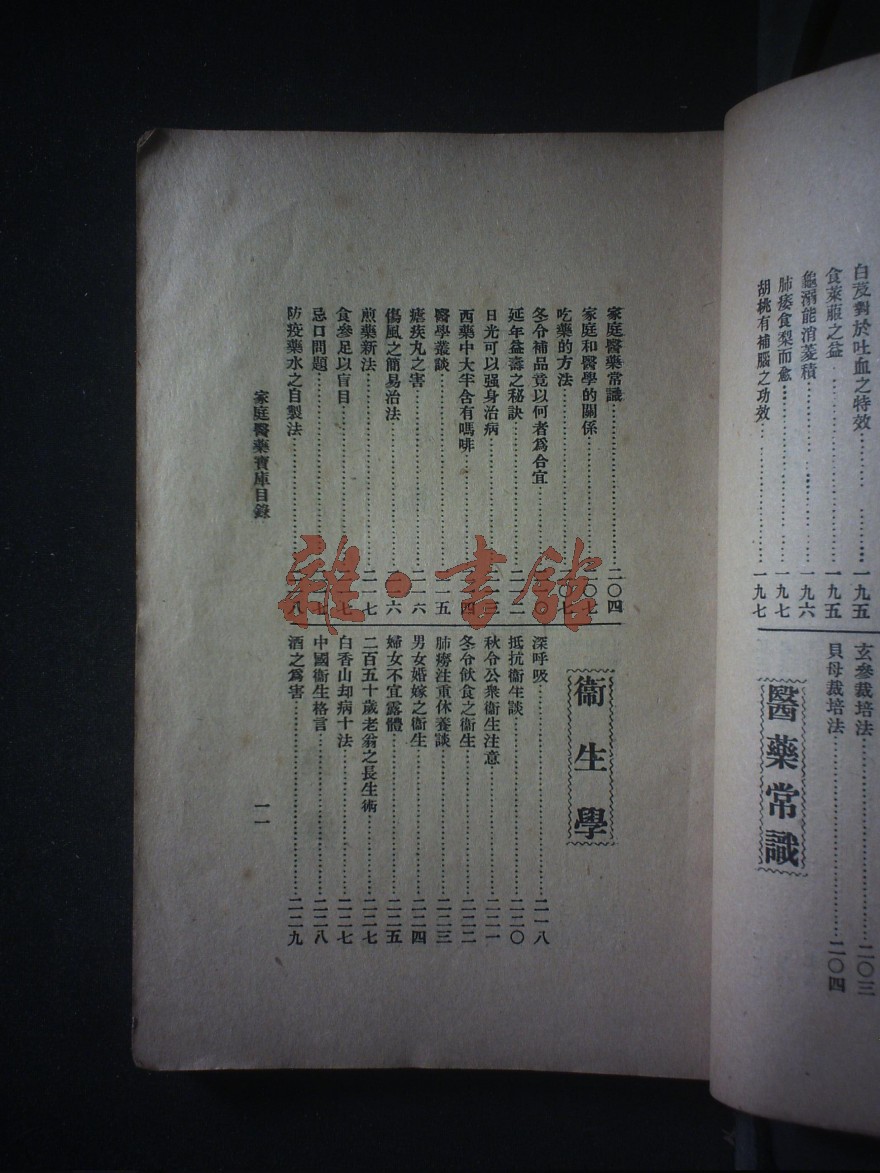 白芨對於吐血之特效……一九五
食萊菔之益……一九五
龜溺能消菱積……一九六
肺痿食梨而愈……一九七
胡桃有補腦之功效……一九七
玄參栽培法……二〇三
貝母栽培法……二〇四
醫藥常識
家庭醫藥常識……二〇四
家庭和醫學的關係……二〇七
吃藥的方法……二〇七
冬令補品竟以何者爲合宜……
延年益壽之秘訣……二一二
日光可以强身治病……二一三
西藥中大半含有嗎啡……二一四
醫學叢談……二一五
瘧疾丸之害……二一六
傷風之簡易治法……二一六
煎藥新法……二一七
食參足以盲目……二一七
忌口問題……二一七
防疫藥水之自製法……二一八
衞生學
深呼吸……二一八
抵抗衞生談……二二〇
秋令公衆衞生注意……二二一
冬令飲食之衞生……二二二
肺癆注重休養談……二二三
男女婚嫁之衞生……二二四
婦女不宜露體……二二五
二百五十歲老翁之長生術……二二七
白香山却病十法……二二七
中國衞生格言……二二八
酒之爲害……二二九
家庭醫藥寶庫目錄
一一
雜·書館